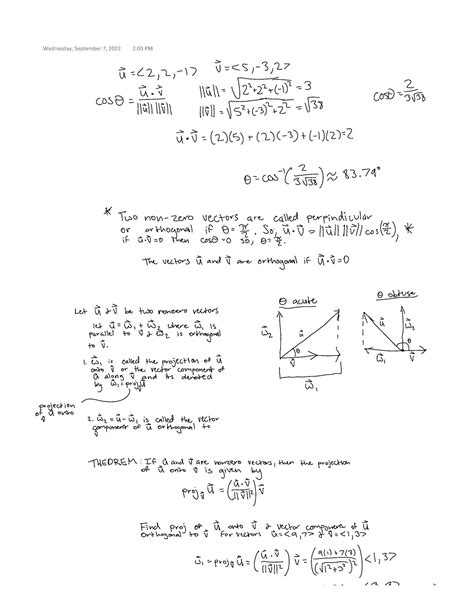 Wednesday, September 7, 2022 2:03 PM
u⃗ = <2, 2, -1> v⃗ = <5, -3, 2>
cosθ = u⃗ · v⃗ / ||u⃗|| ||v⃗||
||u⃗|| = √(2²+2²+(-1)²) = 3
||v⃗|| = √(5²+(-3)²+2²) = √38
cosθ = 2/3√38
u⃗ · v⃗ = (2)(5) + (2)(-3) + (-1)(2) = 2
θ = cos⁻¹(2/3√38) ≈ 83.79°
* Two non-zero vectors are called perpindicular
or orthogonal if θ = π/2. So, u⃗ · v⃗ = ||u⃗|| ||v⃗|| cos(π/2), *
if u⃗·v⃗=0 then cosθ=0 so, θ=π/2.
The vectors u⃗ and v⃗ are orthogonal if u⃗·v⃗=0
Let u⃗ & v⃗ be two nonzero vectors
let u⃗ = w⃗₁ + w⃗₂ where w⃗₁ is
parallel to v⃗ & w⃗₂ is orthogonal
to v⃗.
1. w⃗₁ is called the projection of u⃗
onto v⃗ or the vector component of
u⃗ along v⃗ and its denoted
by w⃗₁ = proj_v⃗ u⃗
projection
of u⃗ onto
v⃗
2. w⃗₂ = u⃗ - w⃗₁ is called the vector
component of u⃗ orthogonal to
θ acute
w⃗₂
u⃗
θ
v⃗
w⃗₁
θ obtuse
u⃗
w⃗₂
θ
w⃗₁
v⃗
THEOREM: If u⃗ and v⃗ are nonzero vectors, then the projection
of u⃗ onto v⃗ is given by
proj_v⃗ u⃗ = (u⃗ · v⃗ / ||v⃗||²) v⃗
Find proj of u⃗ onto v⃗ & vector component of u⃗
orthogonal to v⃗ for vectors u⃗ = <9, 7> & v⃗ = <1, 3>
w⃗₁ = proj_v⃗ u⃗ = (u⃗ · v⃗ / ||v⃗||²) v⃗ = (9(1) + 7(3) / (√(1²+3²))²) <1, 3>